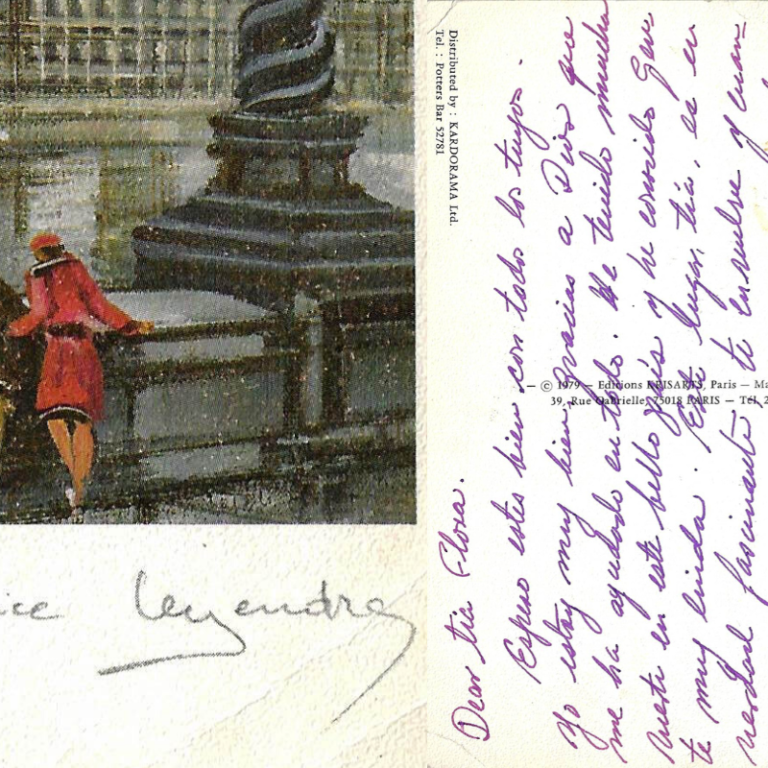 ice Legendre
Distributed by : KARDORAMA Ltd.
Tel. : Potters Bar 52781
— © 1979 — Editions KRISARTS, Paris — Ma
39, Rue Gabrielle, 75018 PARIS — Tél. 2
Dear tía Flora.
Espero estes bien con todos los tuyos.
Yo estoy muy bien, gracias a Dios que
me ha ayudado en todo. He tenido mucha
suerte en este bello país y he conocido gen-
te muy linda. Este lugar, tía, es en
verdad fascinante te envuelve y cuan-